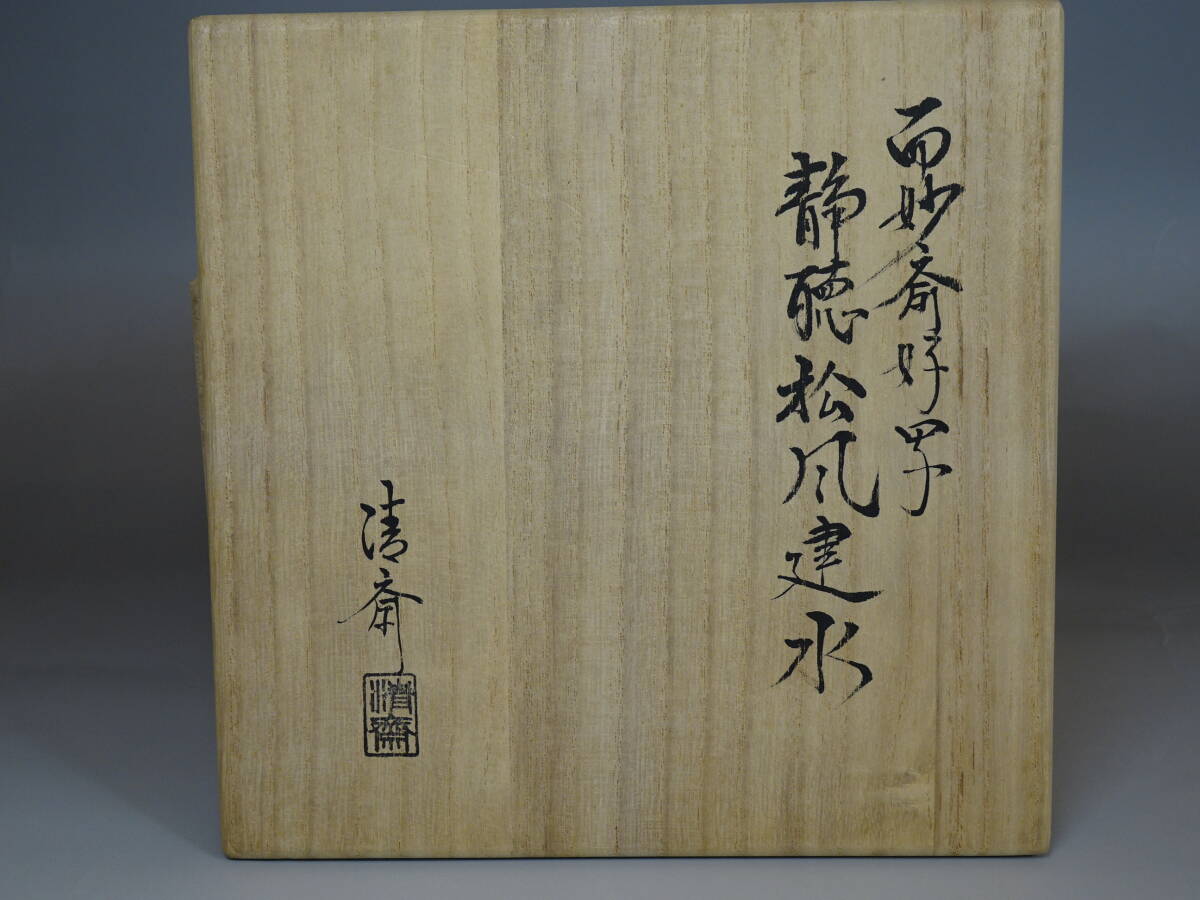 而妙斎好写
静聴松風建水
清斎
清齋